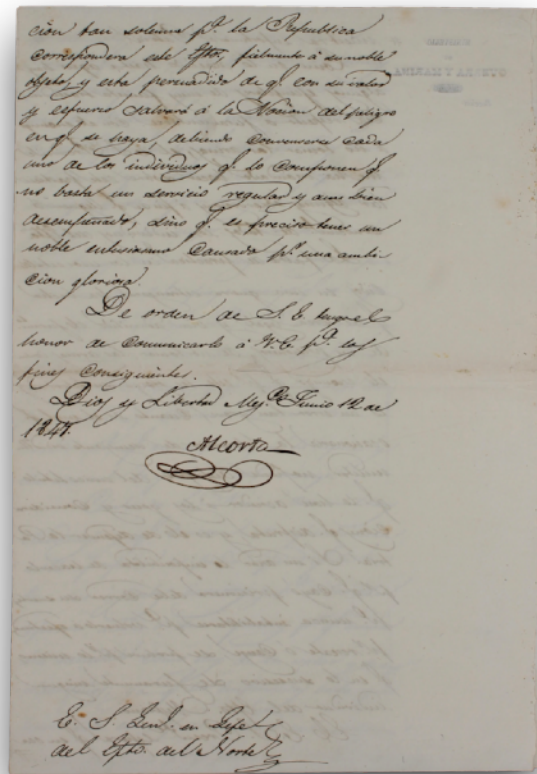 cion tan solemne pª. la Republica
corresponderá este Ejto, fielmente á su noble
objeto, y esta persuadido de q. con su valor
y esfuerzo salvará á la Nacion del peligro
en q. se haya, debiendo convencerse cada
uno de los individuos q. lo componen q.
no basta un servicio regular y aun bien
desempeñado, sino q. es preciso tener un
noble entusiasmo causado pr. una ambi-
cion gloriosa.
De orden de S. E. tengo el
honor de comunicarlo á V. E. pª. los
fines consiguientes.
Dios y Libertad Mejco Junio 12 de
1847.
Alcorta
E. S. Genl. en Gefe
del Ejto. del Norte